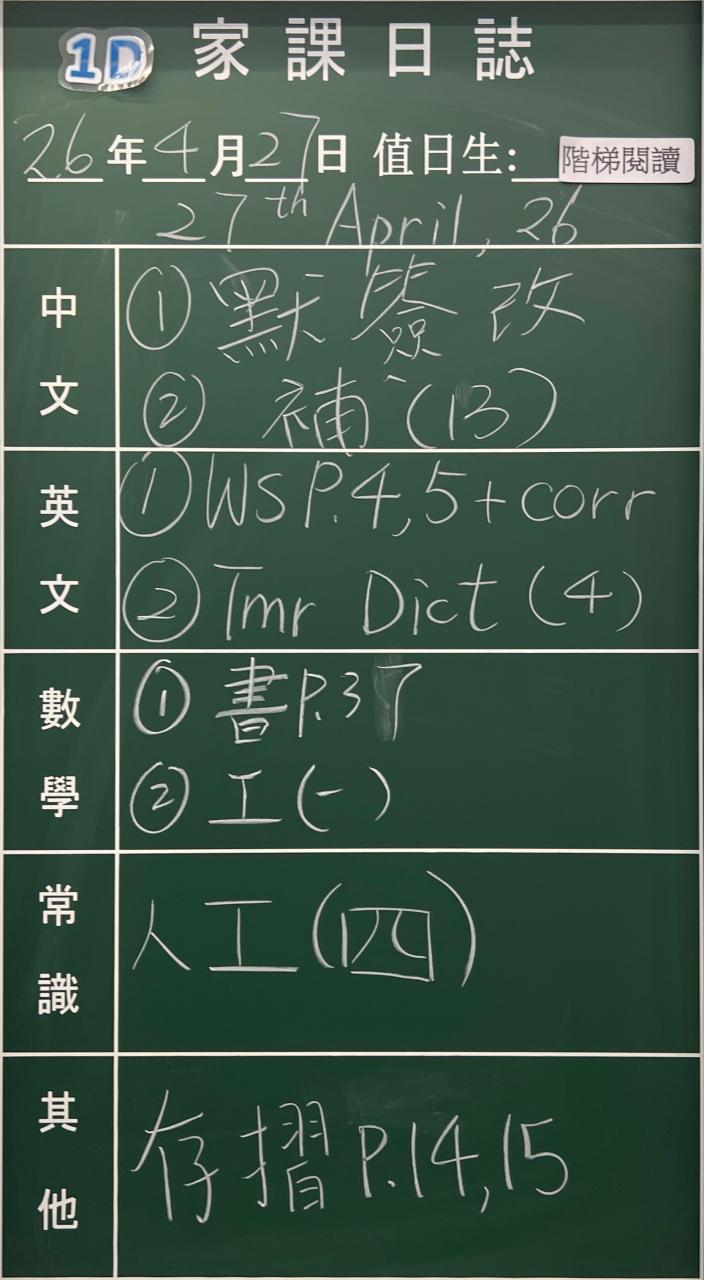 1D 家課日誌
26年4月27日 值日生: 階梯閱讀
27th April, 26
中文
① 默簽改
② 補(13)
英文
① WS P.4,5+corr
② Tmr Dict (4)
數學
① 書P.37
② 工(一)
常識
人工(四)
其他
存摺P.14,15